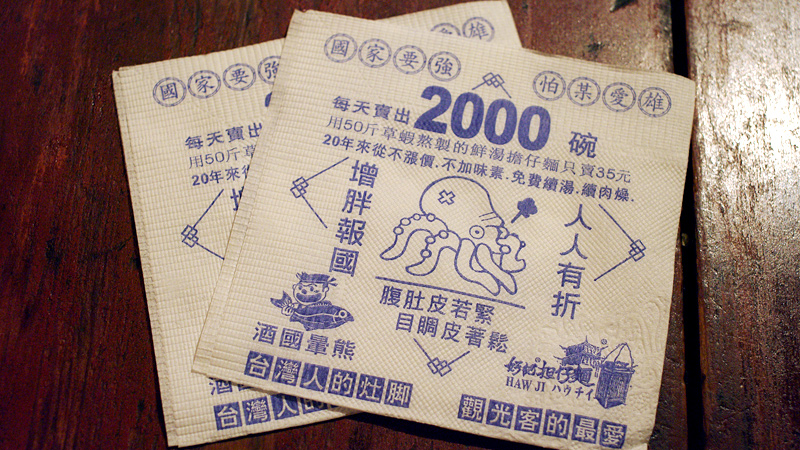 國家要強 怕某愛雄
每天賣出2000碗
用50斤草蝦熬製的鮮湯擔仔麵只賣35元
20年來從不漲價.不加味素.免費續湯.續肉燥.
增胖報國
人人有折
腹肚皮若緊
目睭皮著鬆
酒國暈熊
好記担仔麵
HAW JI ハウチイ
台灣人的灶腳
觀光客的最愛
國家要強
雄
每天賣出
用50斤草
20年來從不
台灣人的